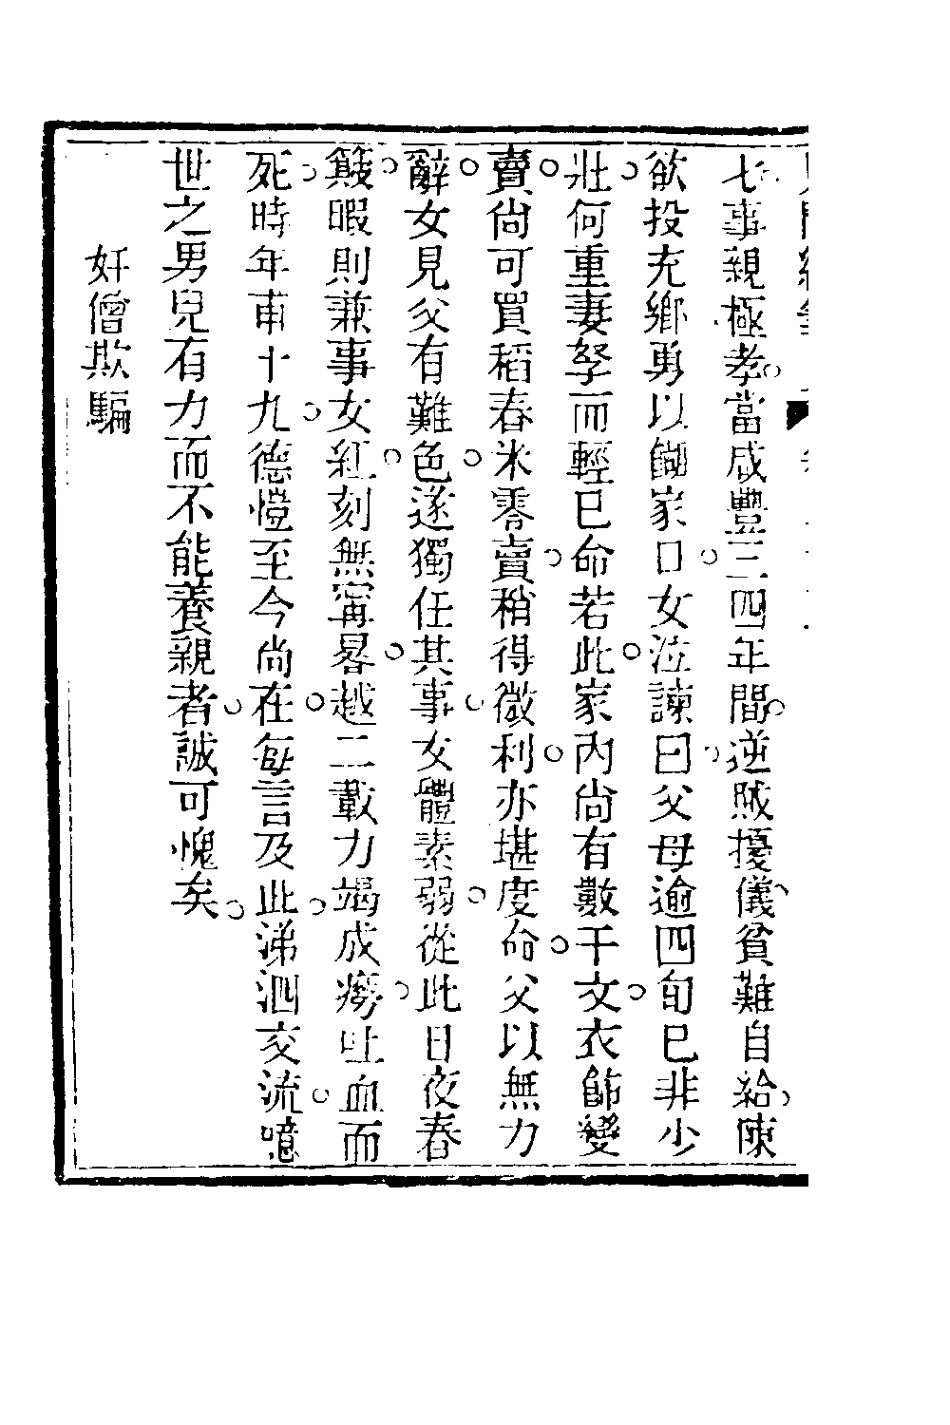 七事親極孝當咸豐三四年間逆賊擾儀貧難自給陳
欲投充鄉勇以餬家口女泣諫曰父母逾四旬已非少
壯何重妻孥而輕已命若此家內尚有數千文衣飾變
賣尚可買稻舂米零賣稍得微利亦堪度命父以無力
辭女見父有難色遂獨任其事女體素弱從此日夜舂
簸暇則兼事女紅刻無甯晷越二載力竭成癆吐血而
死時年甫十九德愷至今尚在每言及此涕泗交流噫
世之男兒有力而不能養親者誠可愧矣
奸僧欺騙